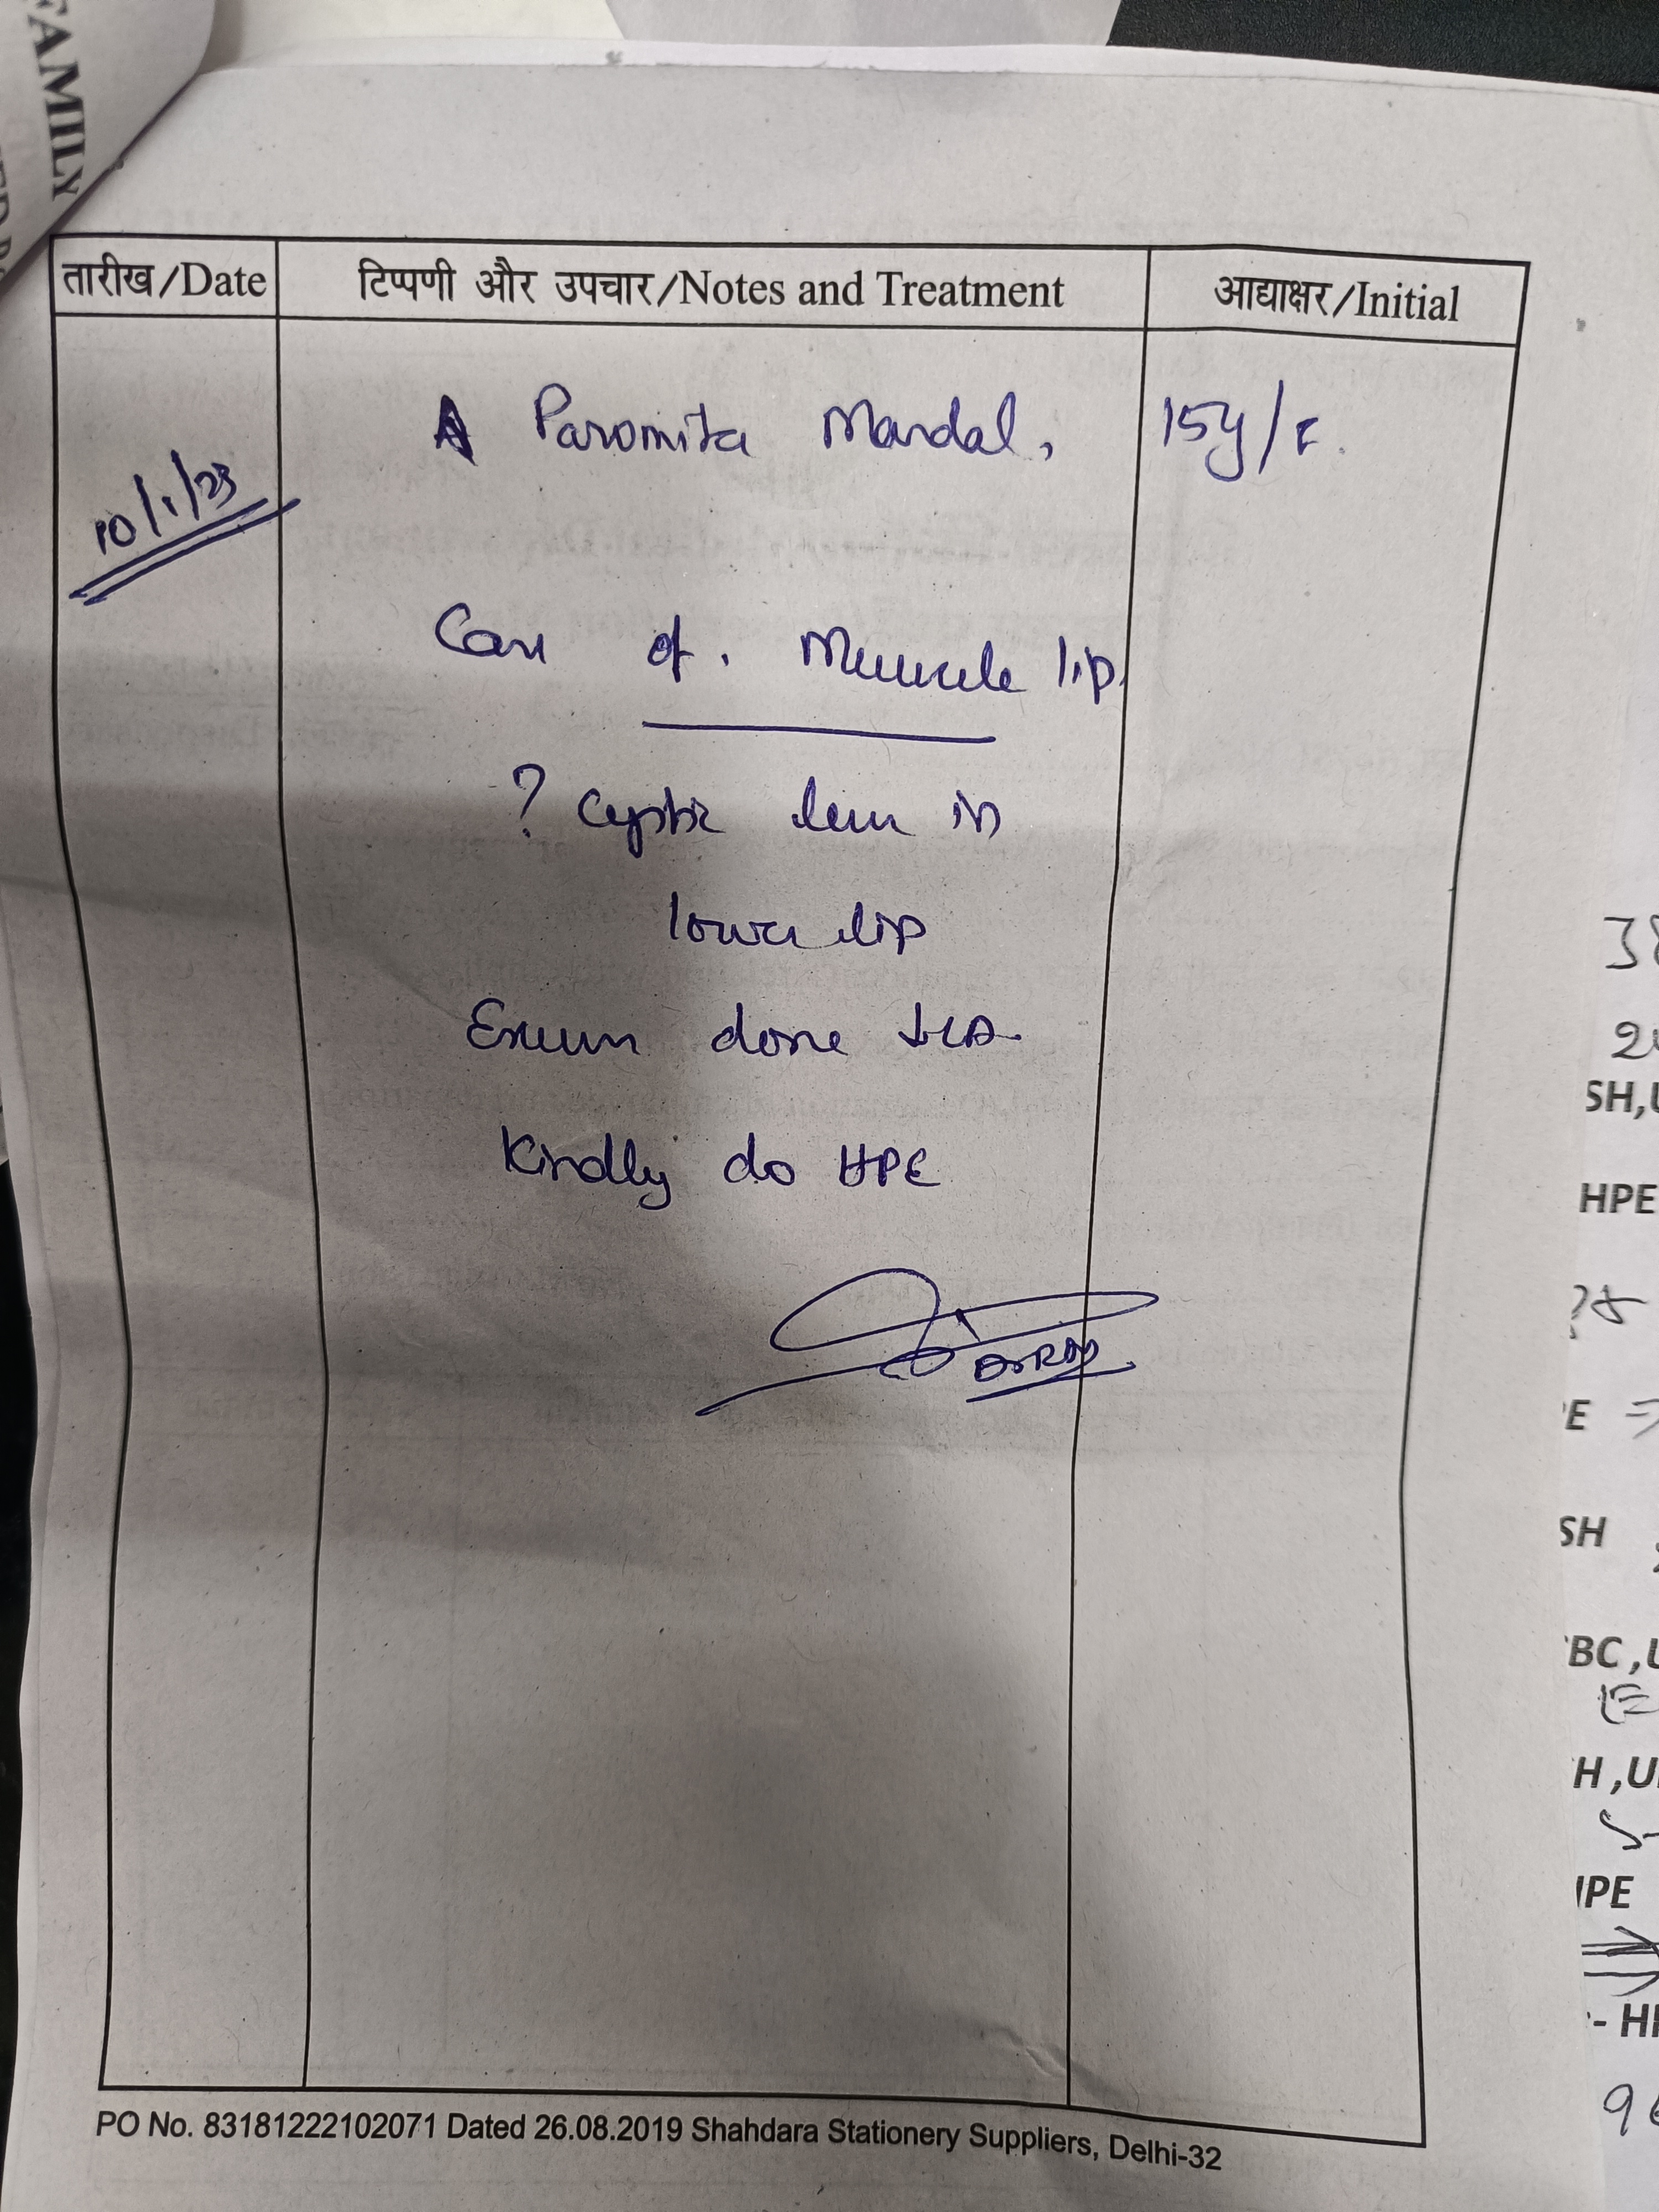 FAMILY
तारीख/Date टिप्पणी और उपचार/Notes and Treatment आद्याक्षर/Initial
Paromita Mandal, 15y/F.
10/1/23
Case of. Mucocele lip.
? Cystic lesion in
lower lip
Excision done ↓LA
Kindly do HPE
PO No. 83181222102071 Dated 26.08.2019 Shahdara Stationery Suppliers, Delhi-32
38
SH,U
HPE
E
SH
BC,U
H,U
PE
- H